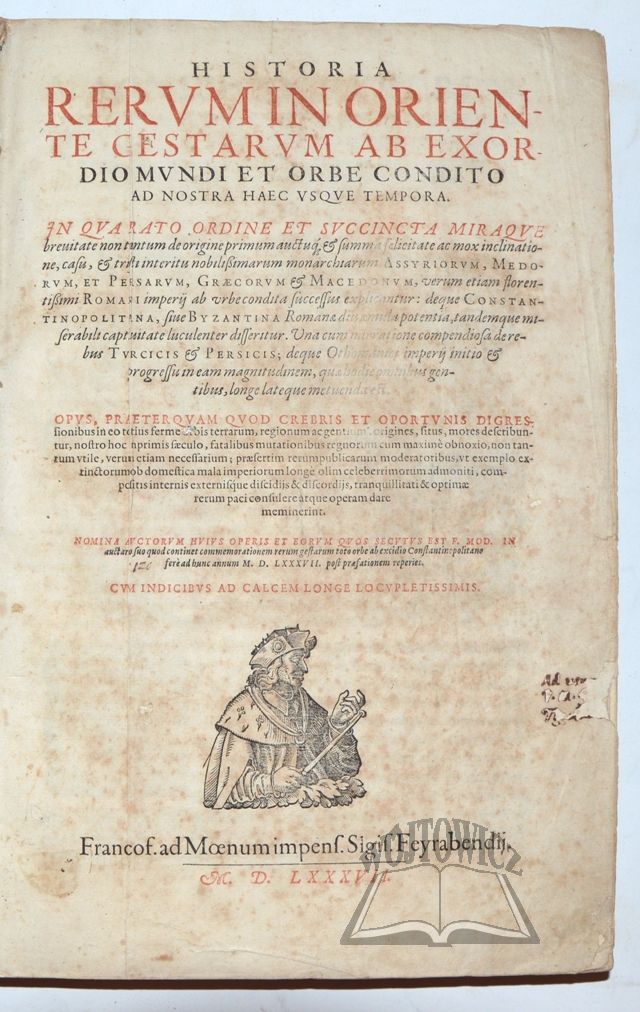 HISTORIA
RERVM IN ORIEN-
TE GESTARVM AB EXOR-
DIO MVNDI ET ORBE CONDITO
AD NOSTRA HAEC VSQVE TEMPORA.
IN QVA RATO ORDINE ET SVCCINCTA MIRAQVE
breuitate non tantum de origine primum auctuq́, & summa felicitate ac mox inclinatio-
ne, casu, & tristi interitu nobilißimarum monarchiarum ASSYRIORVM, MEDO-
RVM, ET PERSARVM, GRÆCORVM & MACEDONVM, verum etiam floren-
tißimi ROMANI imperij ab vrbe condita successus explicantur: deque CONSTAN-
TINOPOLITANA, siue BYZANTINA Romanæ potentia, tandemque mi-
serabili captiuitate luculenter disseritur. Vna cum narratione compendiosa de re-
bus TVRCICIS & PERSICIS; deque imperij initio &
progressu in eam magnitudinem, quæ hodie omnibus gen-
tibus, longe lateque metuenda est.
OPVS, PRÆTERQVAM QVOD CREBRIS ET OPORTVNIS DIGRES-
sionibus in eo totius ferme orbis terrarum, regionum ac gentium origines, situs, mores describun-
tur, nostro hoc inprimis sæculo, fatalibus mutationibus regnorum cum maximè obnoxio, non tan-
tum vtile, verum etiam necessarium; præsertim rerumpublicarum moderatoribus, vt exemplo ex-
tinctorum ob domestica mala imperiorum longè olim celeberrimorum admoniti, com-
positis internis externisque dissidijs & discordijs, tranquillitati & optimæ
rerum paci consulere atque operam dare
meminerint.
NOMINA AVCTORVM HVIVS OPERIS ET EORVM QVOS SECVTVS EST F. MOD. IN
auctaro suo quod continet commemorationem rerum gestarum toto orbe ab excidio Constantinopolitano
ferè ad hunc annum M. D. LXXXVII. post præfationem reperies.
CVM INDICIBVS AD CALCEM LONGE LOCVPLETISSIMIS.
Ad
Francof. ad Mœnum impens. Sigis. Feyrabendij.
M. D. LXXXVII.
WÓJTOWICZ